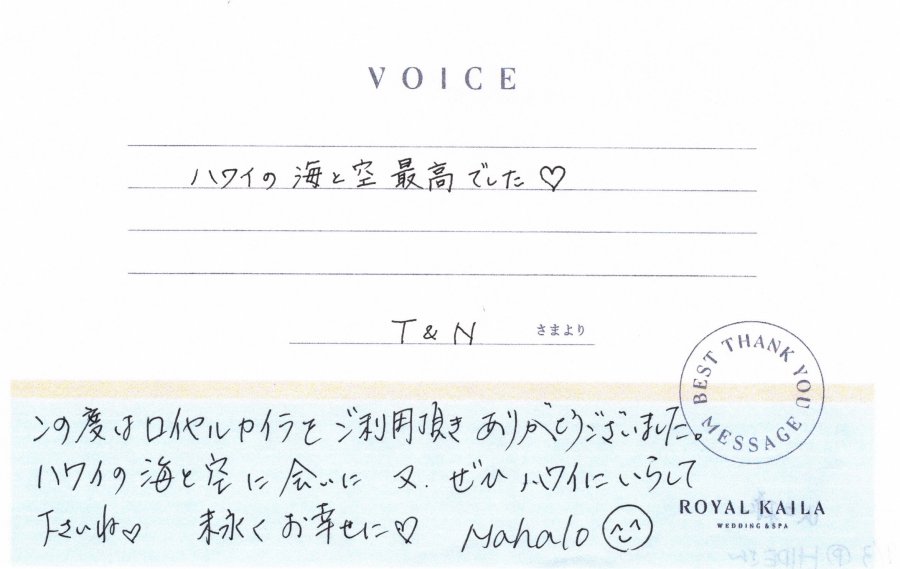 VOICE
ハワイの海と空 最高でした♡
T & N さまより
BEST THANK YOU MESSAGE
この度はロイヤルカイラをご利用頂きありがとうございました。
ハワイの海と空に会いに又、ぜひハワイにいらして
下さいね♡ 末永くお幸せに♡ Mahalo
ROYAL KAILA
WEDDING & SPA